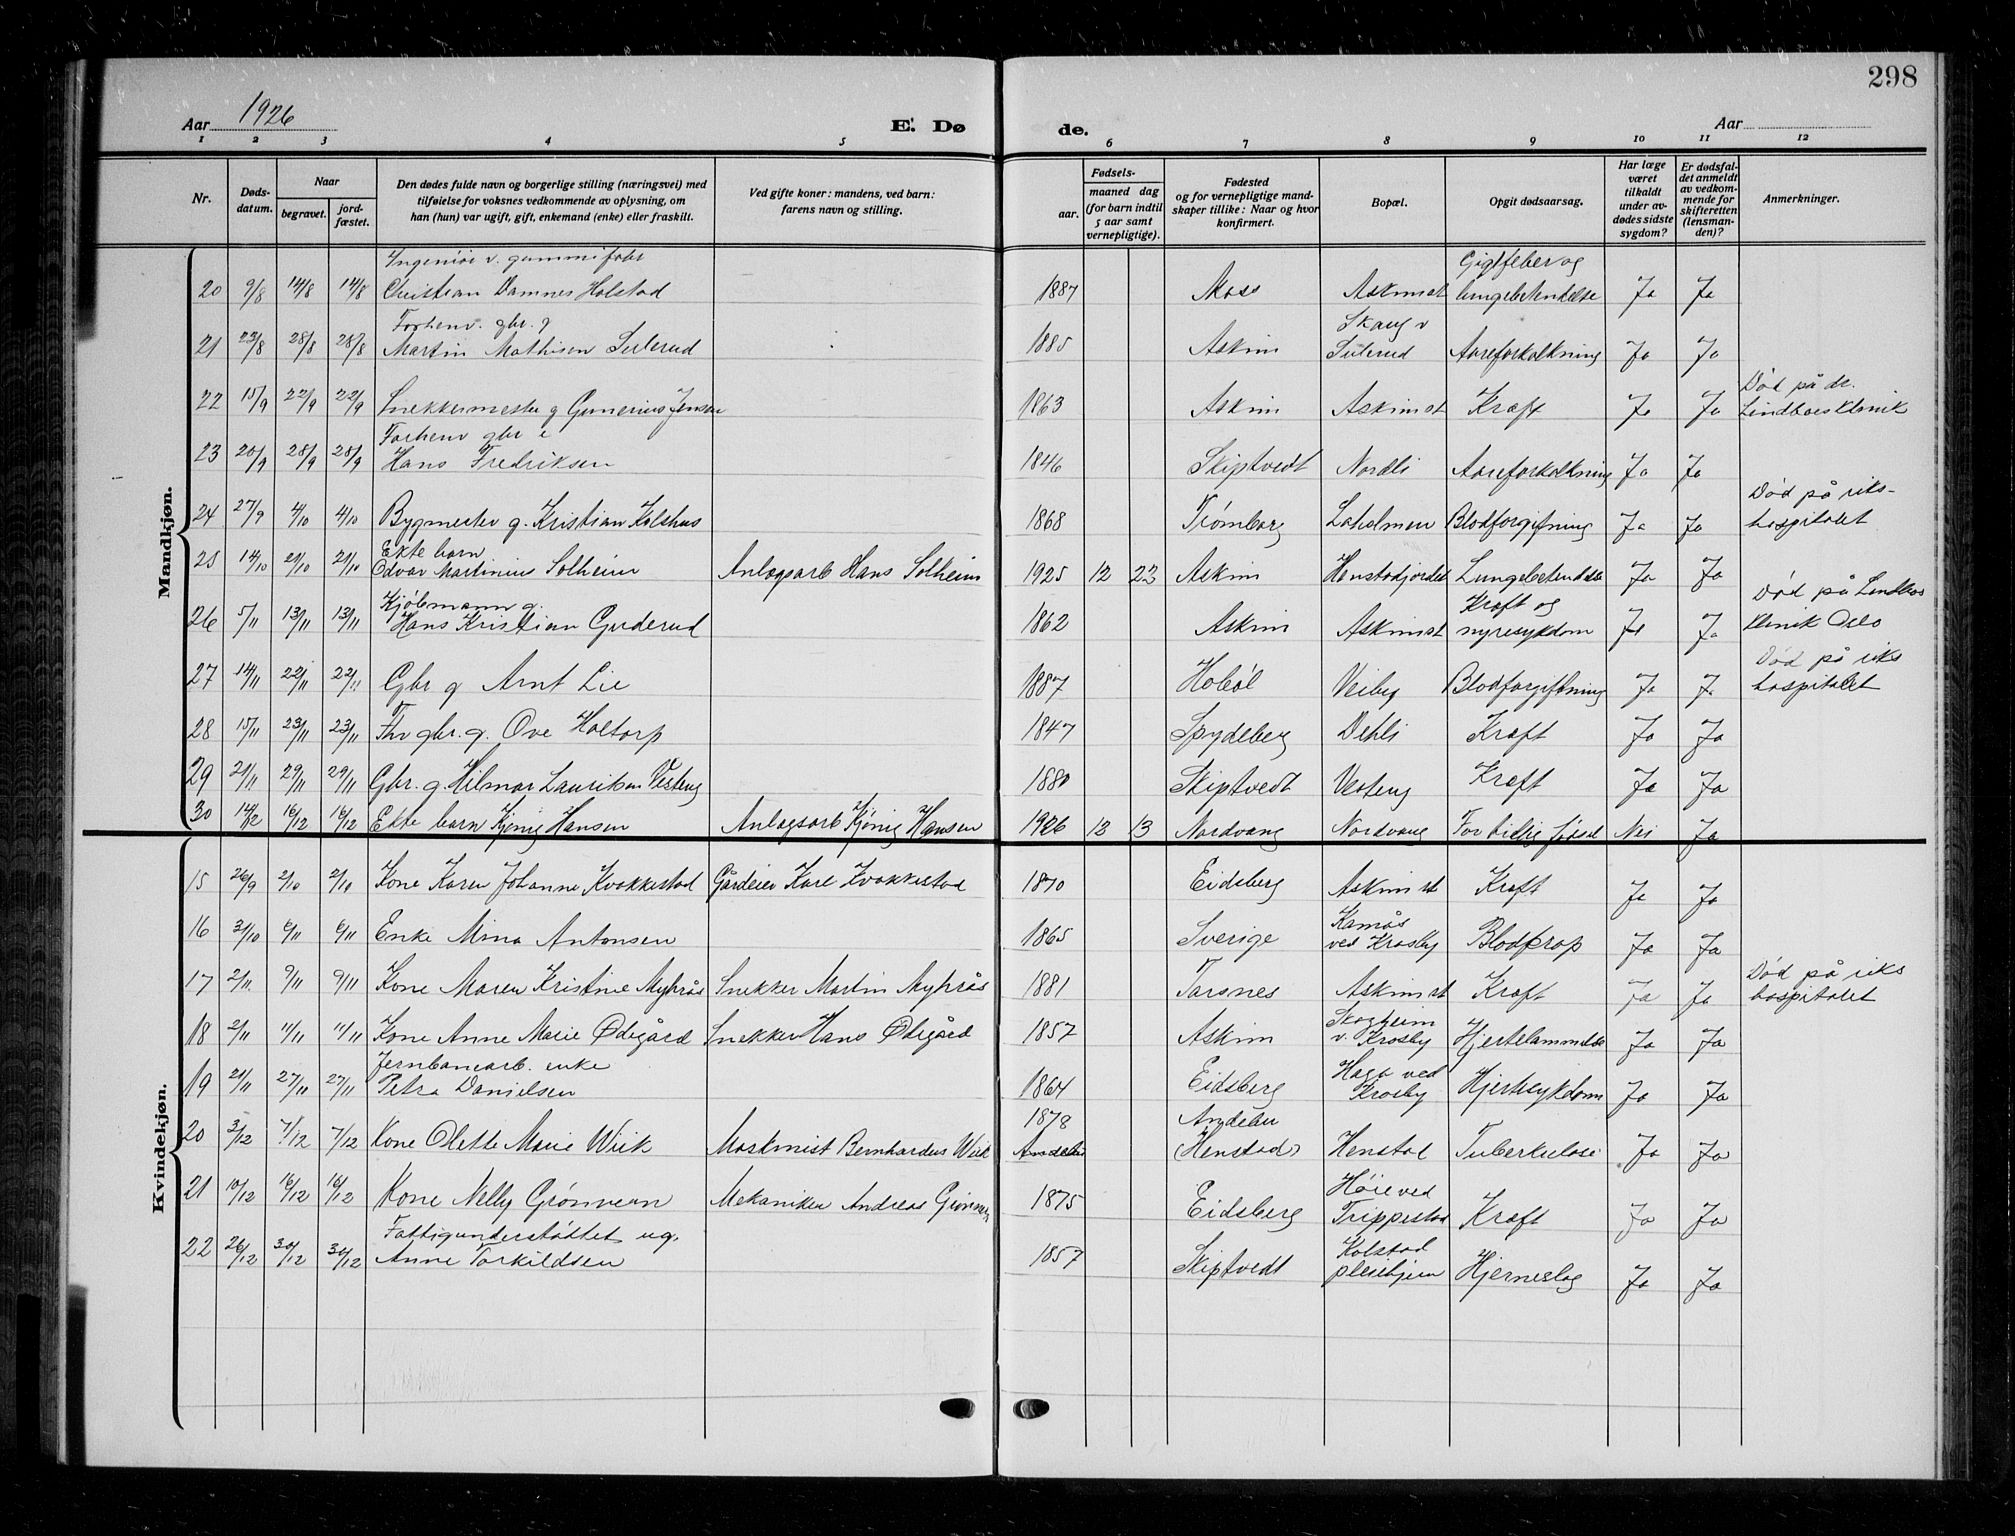 298
Aar 1926
E. Dø
de.
Aar
1 2 3 4 5 6 7 8 9 10 11 12
Nr.
Døds-
datum.
Naar
begravet.
jord-
fæstet.
Den dødes fulde navn og borgerlige stilling (næringsvei) med
tilføielse for voksnes vedkommende av oplysning, om
han (hun) var ugift, gift, enkemand (enke) eller fraskilt.
Ved gifte koner: mandens, ved barn:
farens navn og stilling.
Fødsels-
aar.
maaned dag
(for barn indtil
5 aar samt
vernepligtige).
Fødested
og for vernepligtige mand-
skaper tillike: Naar og hvor
konfirmert.
Bopæl.
Opgit dødsaarsag.
Har læge
været
tilkaldt
under av-
dødes sidste
sygdom?
Er dødsfal-
det anmeldt
av vedkom-
mende for
skifteretten
(lensman-
den)?
Anmerkninger.
Mandkjøn.
Ingeniør v. gummifabr Gigtfeber og
20 9/8 14/8 14/8 Christian Damnes Holstad 1887 Moss Askim st lungebetendelse Ja Ja
Forhenv. gbr. g Skaug v
21 23/8 28/8 28/8 Martin Mathisen Sulerud 1885 Askim Sulerud Aareforkalkning Ja Ja
Død på dr.
22 15/9 22/9 22/9 Snekkermester g Gunerius Jensen 1863 Askim Askim st Kræft Ja Ja Lindboes Klinik
Forhenv gbr e
23 20/9 28/9 28/9 Hans Fredriksen 1846 Skiptvedt Nordli Aareforkalkning Ja Ja
Død på riks-
24 27/9 4/10 4/10 Bygmester g. Kristian Kolshus 1868 Trømborg Laholmen Blodforgiftning Ja Ja hospitalet
Ekte barn
25 14/10 21/10 21/10 Odvar Martinius Solheim Anlegsarb Hans Solheim 1925 12 23 Askim Henstadjordet Lungebetendelse Ja Ja
Kjøbmann g. Kræft og Død på Lindboes
26 5/11 13/11 13/11 Hans Kristian Guderud 1862 Askim Askim st nyresykdom Ja Ja Klinik Oslo
Død på riks
27 14/11 22/11 22/11 Gbr g Arnt Lie 1887 Hobøl Veiby Blodforgiftning Ja Ja hospitalet
28 15/11 23/11 23/11 Fhv gbr. g. Ove Holtorp 1847 Spydeberg Dehli Kræft Ja Ja
29 21/11 29/11 29/11 Gbr. g. Hilmar Lauritsen Vesteng 1880 Skiptvedt Vesteng Kræft Ja Ja
30 14/12 16/12 16/12 Ekte barn Kjønig Hansen Anlegsarb Kjønig Hansen 1926 12 13 Nordvang Nordvang For tidlig fødsel Nei Ja
Kvindekjøn.
15 26/9 2/10 2/10 Kone Karen Johanne Kvakkestad Gårdeier Karl Kvakkestad 1870 Eidsberg Askim st Kræft Ja Ja
Kamås
16 31/10 6/11 6/11 Enke Mina Antonsen 1865 Sverige ved Krosby Blodprop Ja Ja
Død på riks
17 2/11 9/11 9/11 Kone Maren Kristine Myhrås Snekker Martin Myhrås 1881 Torsnes Askim st Kræft Ja Ja hospitalet
Skogheim
18 2/11 11/11 11/11 Kone Anne Marie Ødegård Snekker Hans Ødegård 1857 Askim v. Krosby Hjertelammelse Ja Ja
Jernbanearb. enke Haga ved
19 21/11 27/11 27/11 Petra Danielsen 1864 Eidsberg Krosby Hjertesykdom Ja Ja
1878 Andebu
20 3/12 7/12 7/12 Kone Olette Marie Wiik Maskinist Bernhardus Wiik Andebu (Henstad) Henstad Tuberkulose Ja Ja
Høie ved
21 10/12 16/12 16/12 Kone Nelly Grønvern Mekaniker Andreas 1875 Eidsberg Trippestad Kræft Ja Ja
Fattigunderstøttet ug. Kolstad
22 26/12 30/12 30/12 Anne Torkildsen 1857 Skiptvedt pleiehjem Hjerneslag Ja Ja